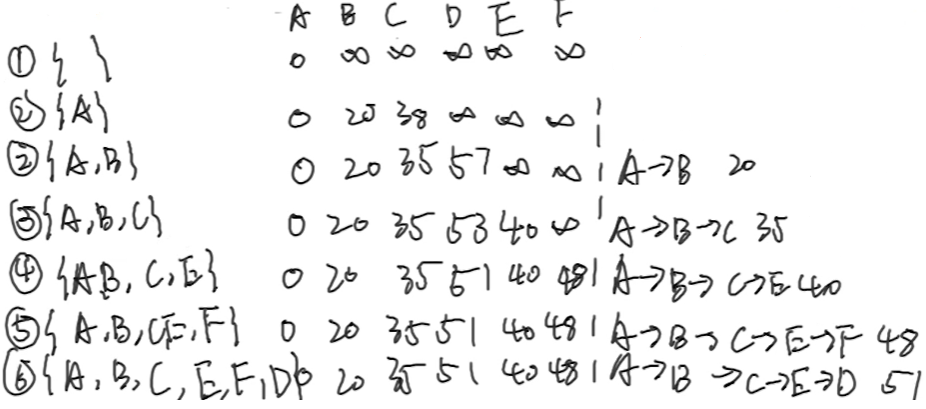 A B C D E F
① { } 0 ∞ ∞ ∞ ∞ ∞
② {A} 0 20 38 ∞ ∞ ∞ |
② {A,B} 0 20 35 57 ∞ ∞ | A→B 20
③ {A,B,C} 0 20 35 53 40 ∞ | A→B→C 35
④ {A,B,C,E} 0 20 35 51 40 48 | A→B→C→E 40
⑤ {A,B,C,E,F} 0 20 35 51 40 48 | A→B→C→E→F 48
⑥ {A,B,C,E,F,D} 0 20 35 51 40 48 | A→B→C→E→D 51